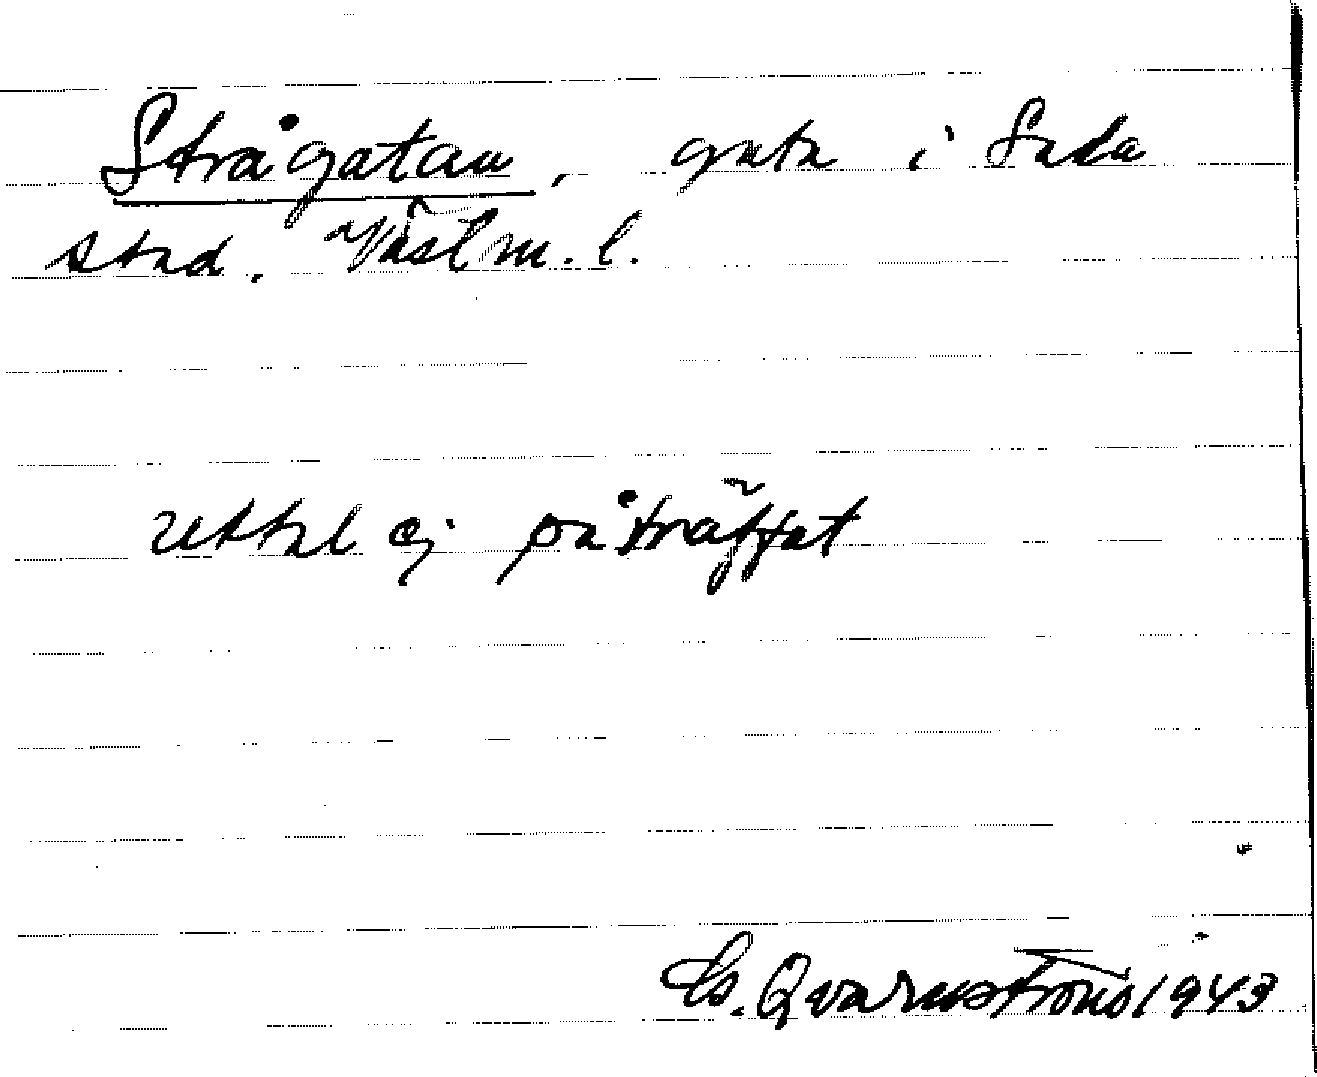 Strågatan, gata i Sala
stad. Västm. l.
uttal ej påträffat
G. Qvarnström 1943